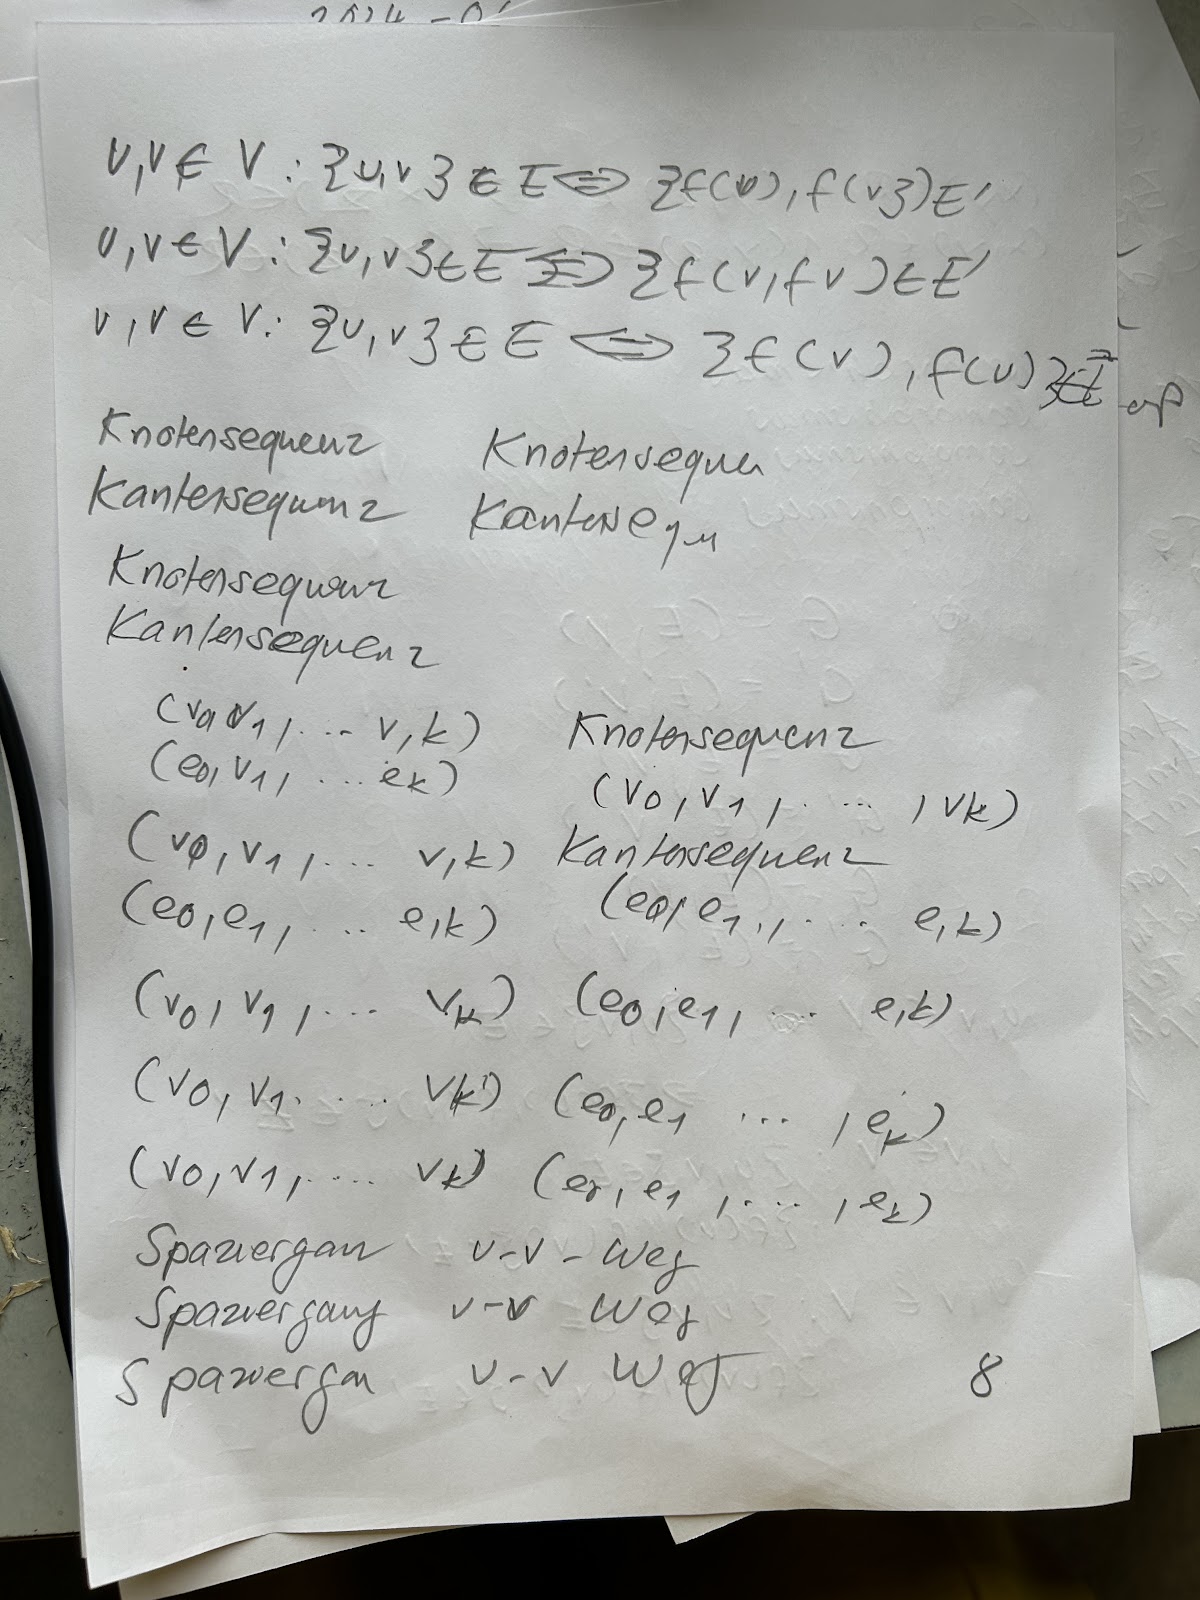 u,v ∈ V : {u,v} ∈ E ⇔ {f(u), f(v})E'
u,v ∈ V : {u,v} ∈ E ⇔ {f(v,fv) ∈ E'
u,v ∈ V : {u,v} ∈ E ⇔ {f(v), f(u)}
Knotensequenz Knotensequen
Kantensequenz Kantensequ
Knotensequenz
Kantensequenz
(v0 v1, ... v,k) Knotensequenz
(e0, v1, ... ek) (v0, v1, ... , vk)
(v0, v1, ... v,k) Kantensequenz
(e0, e1, ... e,k) (e0, e1, ... e,k)
(v0, v1, ... vk) (e0, e1, ... e,k)
(v0, v1. ... vk) (e0, e1 ... , ek)
(v0, v1, ... vk) (e0, e1, ... , ek)
Spaziergan u-v-Weg
Spaziergang v-v Weg
Spaziergan u-v Weg 8